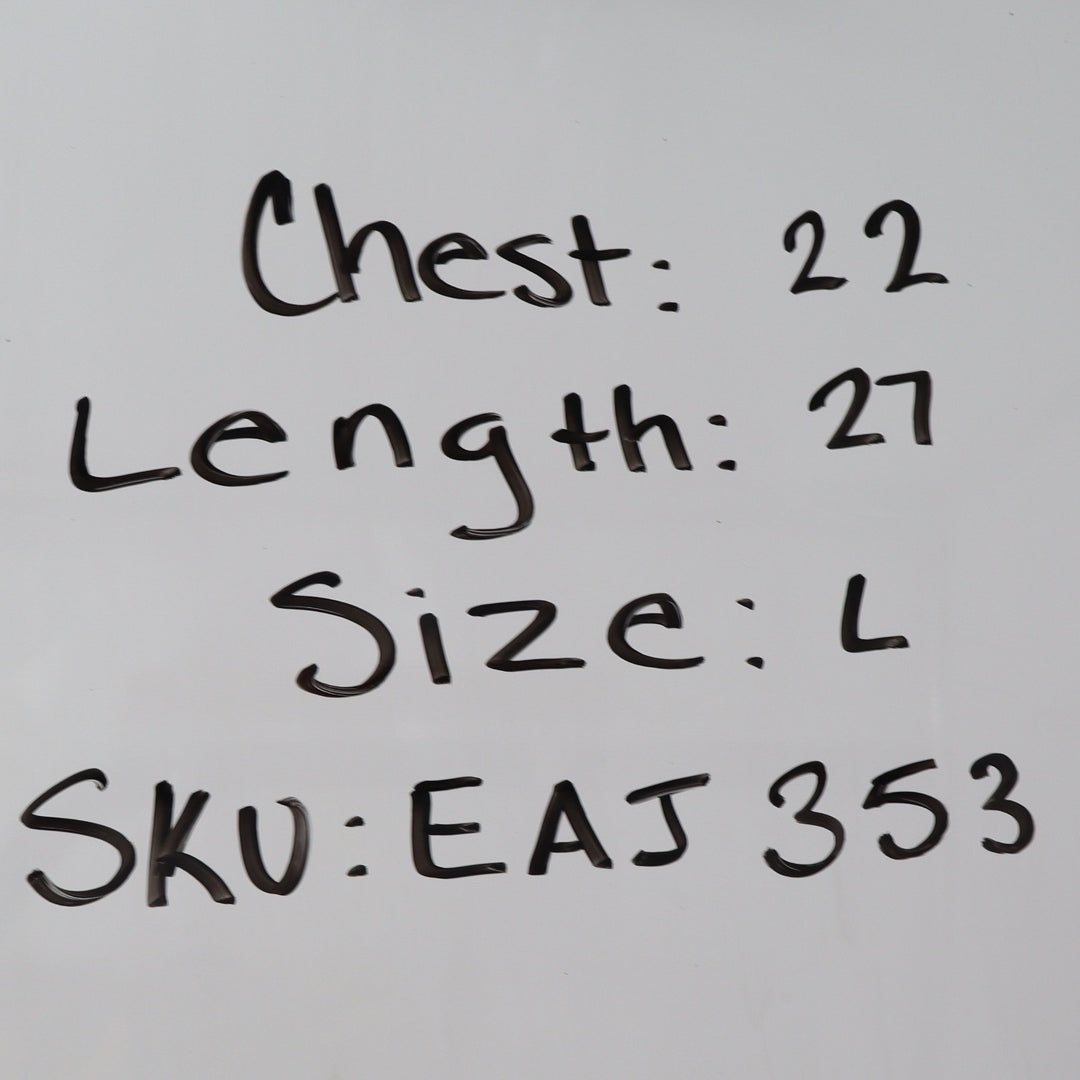 Chest: 22
Length: 27
Size: L
SKU: EAJ 353